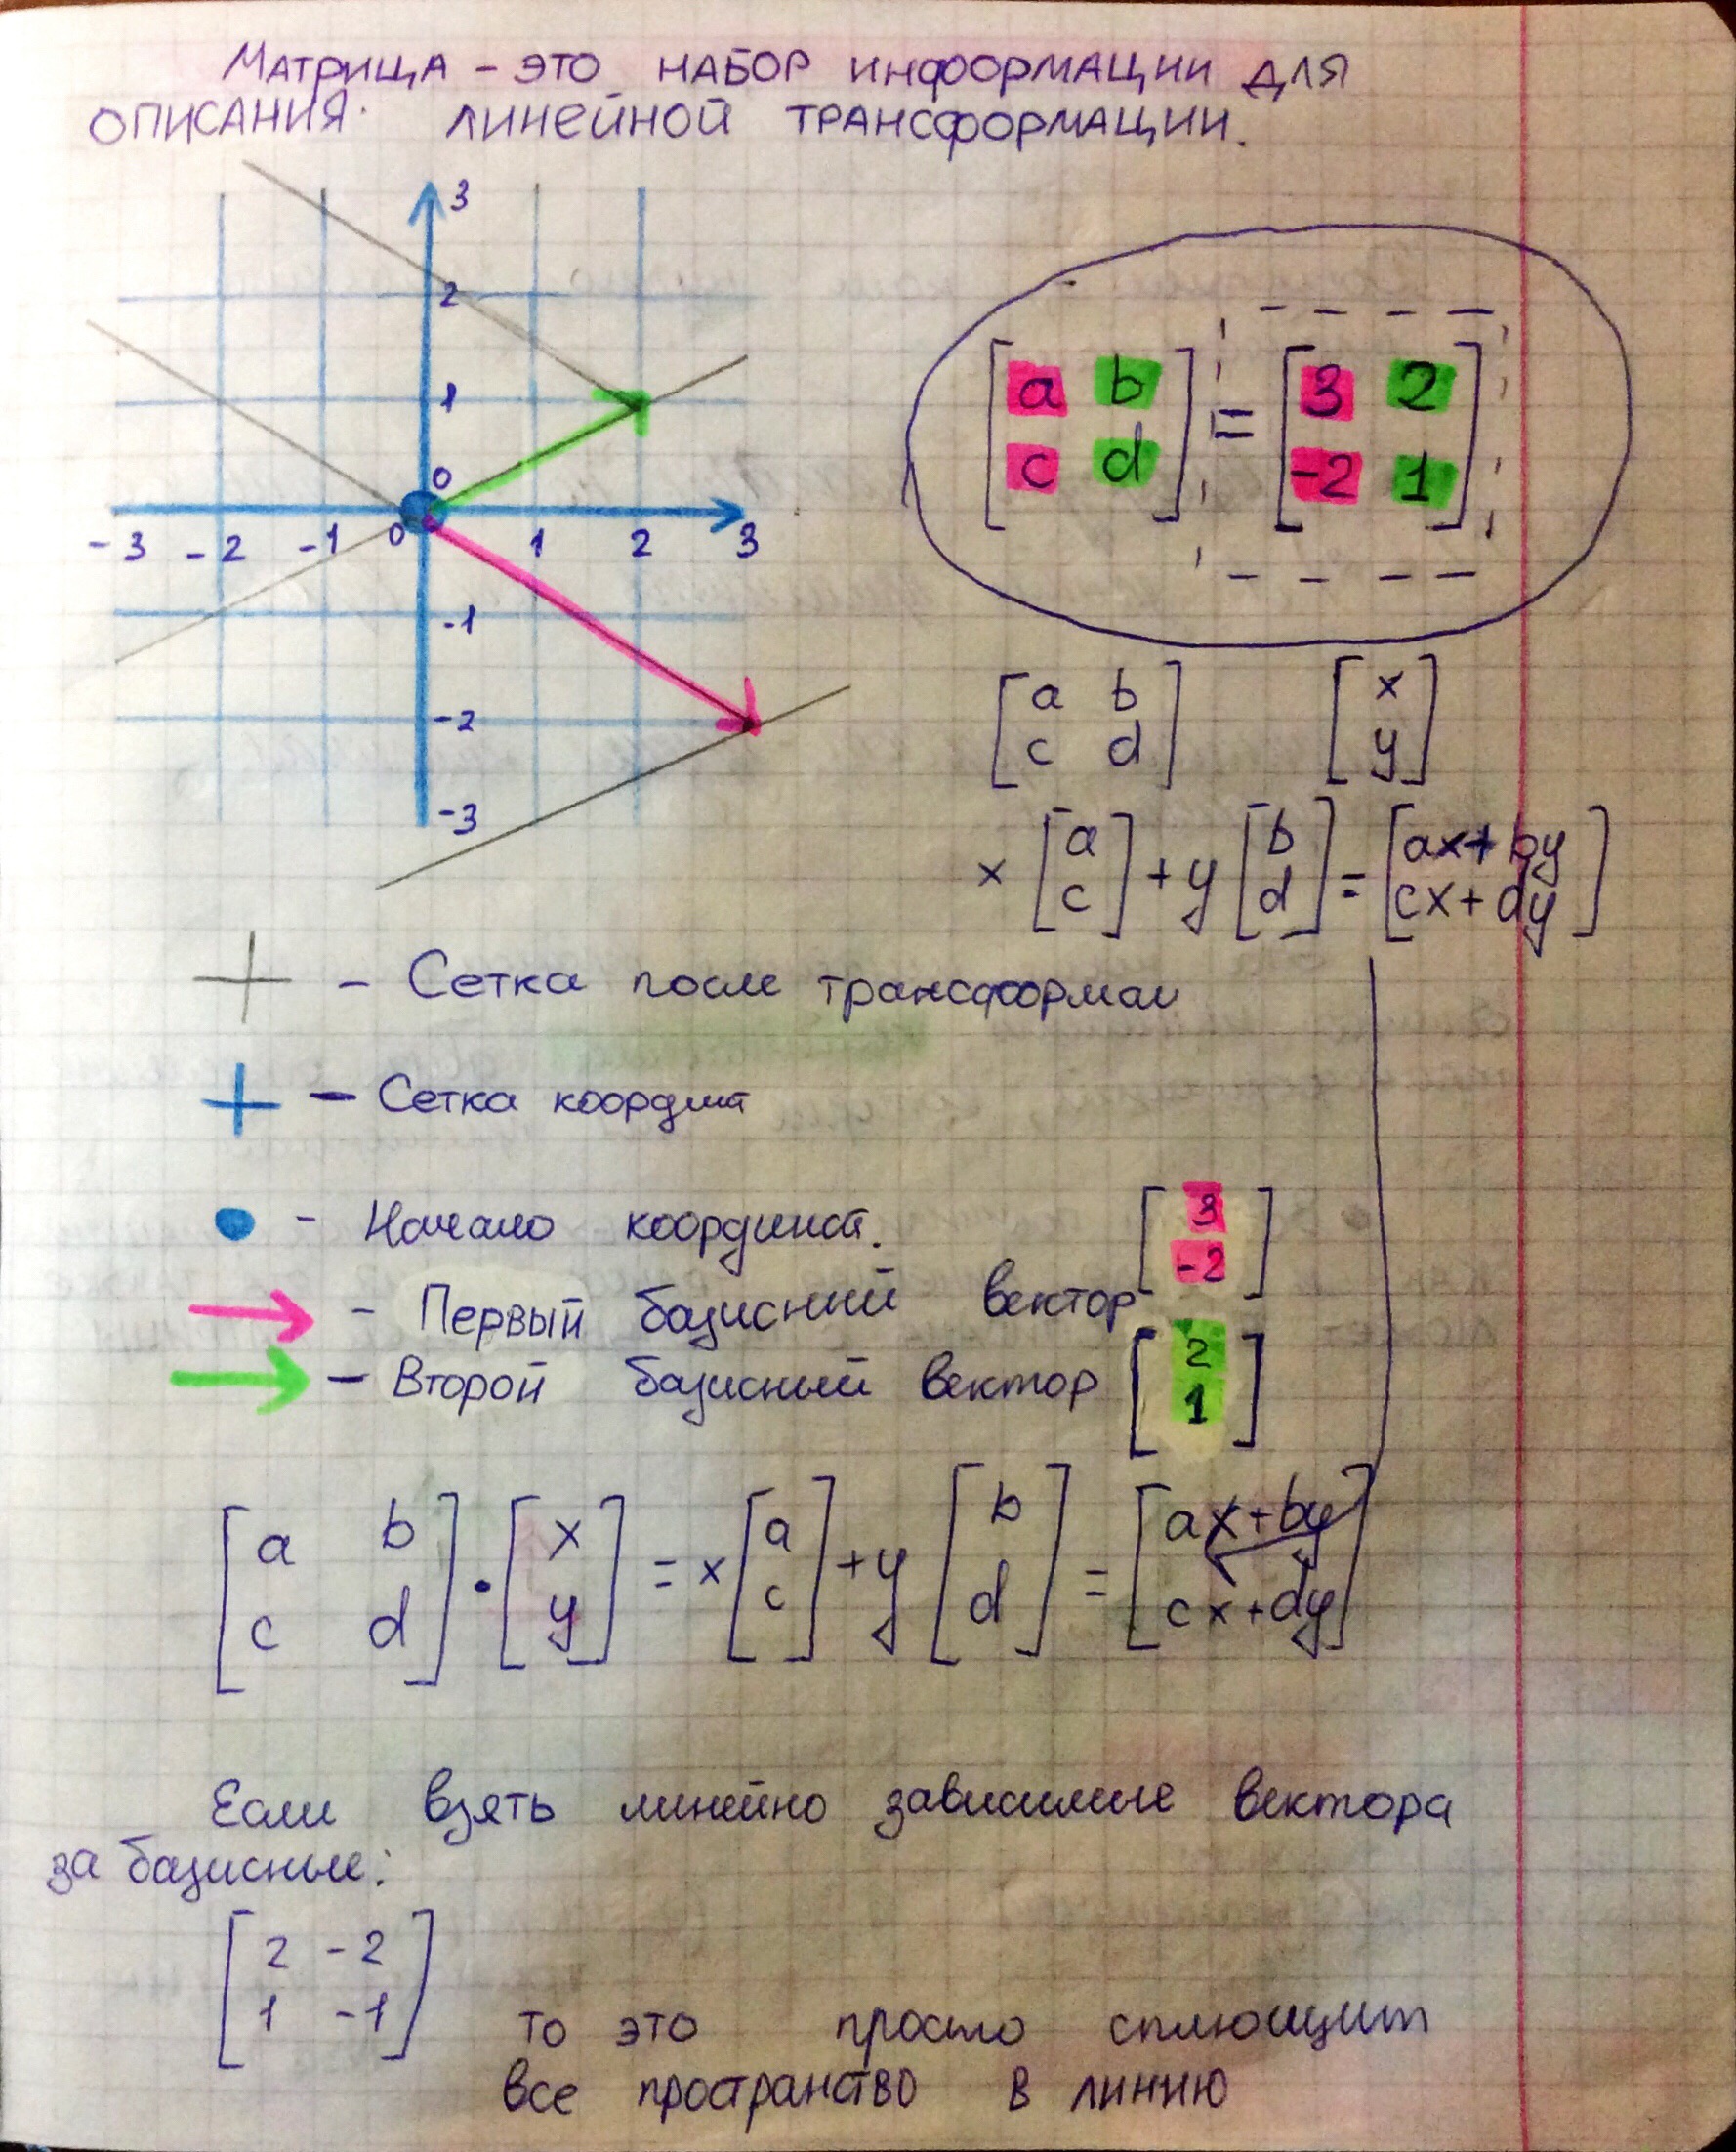 МАТРИЦА - ЭТО НАБОР ИНФОРМАЦИИ ДЛЯ
ОПИСАНИЯ ЛИНЕЙНОЙ ТРАНСФОРМАЦИИ.
3
2
1
0
-3 -2 -1 0 1 2 3
-1
-2
-3
[a b
c d] = [3 2
-2 1]
[a b
c d] [x
y]
x [a
c] + y [b
d] = [ax+by
cx+dy]
- Сетка после трансформаци
- Сетка координат
- Начало координат.
- Первый базисный вектор [3
-2]
- Второй базисный вектор [2
1]
[a b
c d] · [x
y] = x [a
c] + y [b
d] = [ax+by
cx+dy]
Если взять линейно зависимые вектора
за базисные:
[2 -2
1 -1]
то это просто сплющит
все пространство в линию